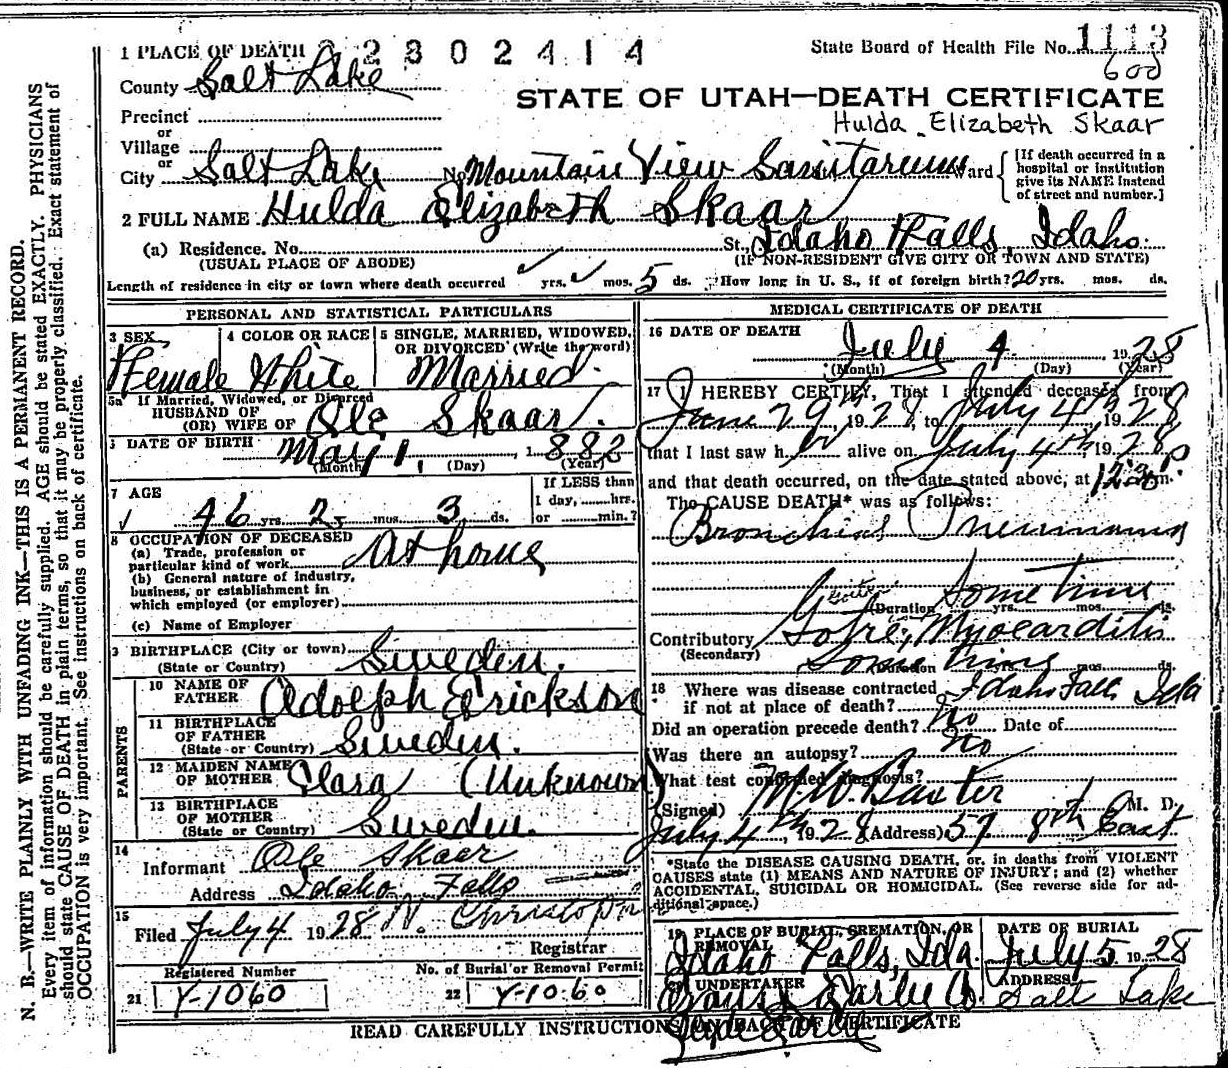 1 PLACE OF DEATH 2302414
State Board of Health File No. 1113
County Salt Lake
STATE OF UTAH—DEATH CERTIFICATE
Precinct
or
Hulda Elizabeth Skaar
Village
or
City Salt Lake No. Mountain View Sanitarium Ward
[If death occurred in a hospital or institution give its NAME instead of street and number.]
2 FULL NAME Hulda Elizabeth Skaar
(a) Residence. No. St., Idaho Falls, Idaho.
(USUAL PLACE OF ABODE) (IF NON-RESIDENT GIVE CITY OR TOWN AND STATE)
Length of residence in city or town where death occurred yrs. mos. 5 ds. How long in U. S., if of foreign birth? 20 yrs. mos. ds.
PERSONAL AND STATISTICAL PARTICULARS
3 SEX 4 COLOR OR RACE 5 SINGLE, MARRIED, WIDOWED, OR DIVORCED (Write the word)
Female White Married
5a If Married, Widowed, or Divorced
HUSBAND OF
(OR) WIFE OF Ole Skaar
6 DATE OF BIRTH May 1, 1882
(Month) (Day) (Year)
7 AGE
If LESS than
1 day, hrs.
46 yrs. 2 mos. 3 ds. or min.?
8 OCCUPATION OF DECEASED
(a) Trade, profession or
particular kind of work At home
(b) General nature of industry,
business, or establishment in
which employed (or employer)
(c) Name of Employer
9 BIRTHPLACE (City or town)
(State or Country) Sweden.
PARENTS
10 NAME OF
FATHER Adolph Erickson
11 BIRTHPLACE
OF FATHER
(State or Country) Sweden.
12 MAIDEN NAME
OF MOTHER Clara (Unknown)
13 BIRTHPLACE
OF MOTHER
(State or Country) Sweden.
14
Informant Ole Skaar
Address Idaho Falls
15
Filed July 4 1928
Registrar
Registered Number No. of Burial or Removal Permit
21 Y-1060 22 Y-1060
MEDICAL CERTIFICATE OF DEATH
16 DATE OF DEATH
July 4 1928
(Month) (Day) (Year)
17 I HEREBY CERTIFY, That I attended deceased from
June 29th, 1928, to July 4th 1928
that I last saw her alive on July 4th 1928
and that death occurred, on the date stated above, at 12:30 P m.
The CAUSE DEATH* was as follows:
Bronchial Pneumonia
Goiter
(Duration Some time yrs. mos. ds.
Contributory Goitre, Myocarditis
(Secondary)
Some time
(Duration yrs. mos. ds.
18 Where was disease contracted
if not at place of death? Idaho Falls Ida
Did an operation precede death? No Date of
Was there an autopsy? No
What test confirmed diagnosis?
(Signed) M.W. Baxter M. D.
July 4th, 1928 (Address) 57 8th East
*State the DISEASE CAUSING DEATH, or, in deaths from VIOLENT
CAUSES state (1) MEANS AND NATURE OF INJURY; and (2) whether
ACCIDENTAL, SUICIDAL OR HOMICIDAL. (See reverse side for ad-
ditional space.)
19 PLACE OF BURIAL, CREMATION, OR REMOVAL DATE OF BURIAL
Idaho Falls, Ida. July 5 1928
20 UNDERTAKER ADDRESS
Salt Lake
READ CAREFULLY INSTRUCTIONS ON BACK OF CERTIFICATE
N. B.—WRITE PLAINLY WITH UNFADING INK—THIS IS A PERMANENT RECORD.
Every item of information should be carefully supplied. AGE should be stated EXACTLY. PHYSICIANS
should state CAUSE OF DEATH in plain terms, so that it may be properly classified. Exact statement of
OCCUPATION is very important. See instructions on back of certificate.